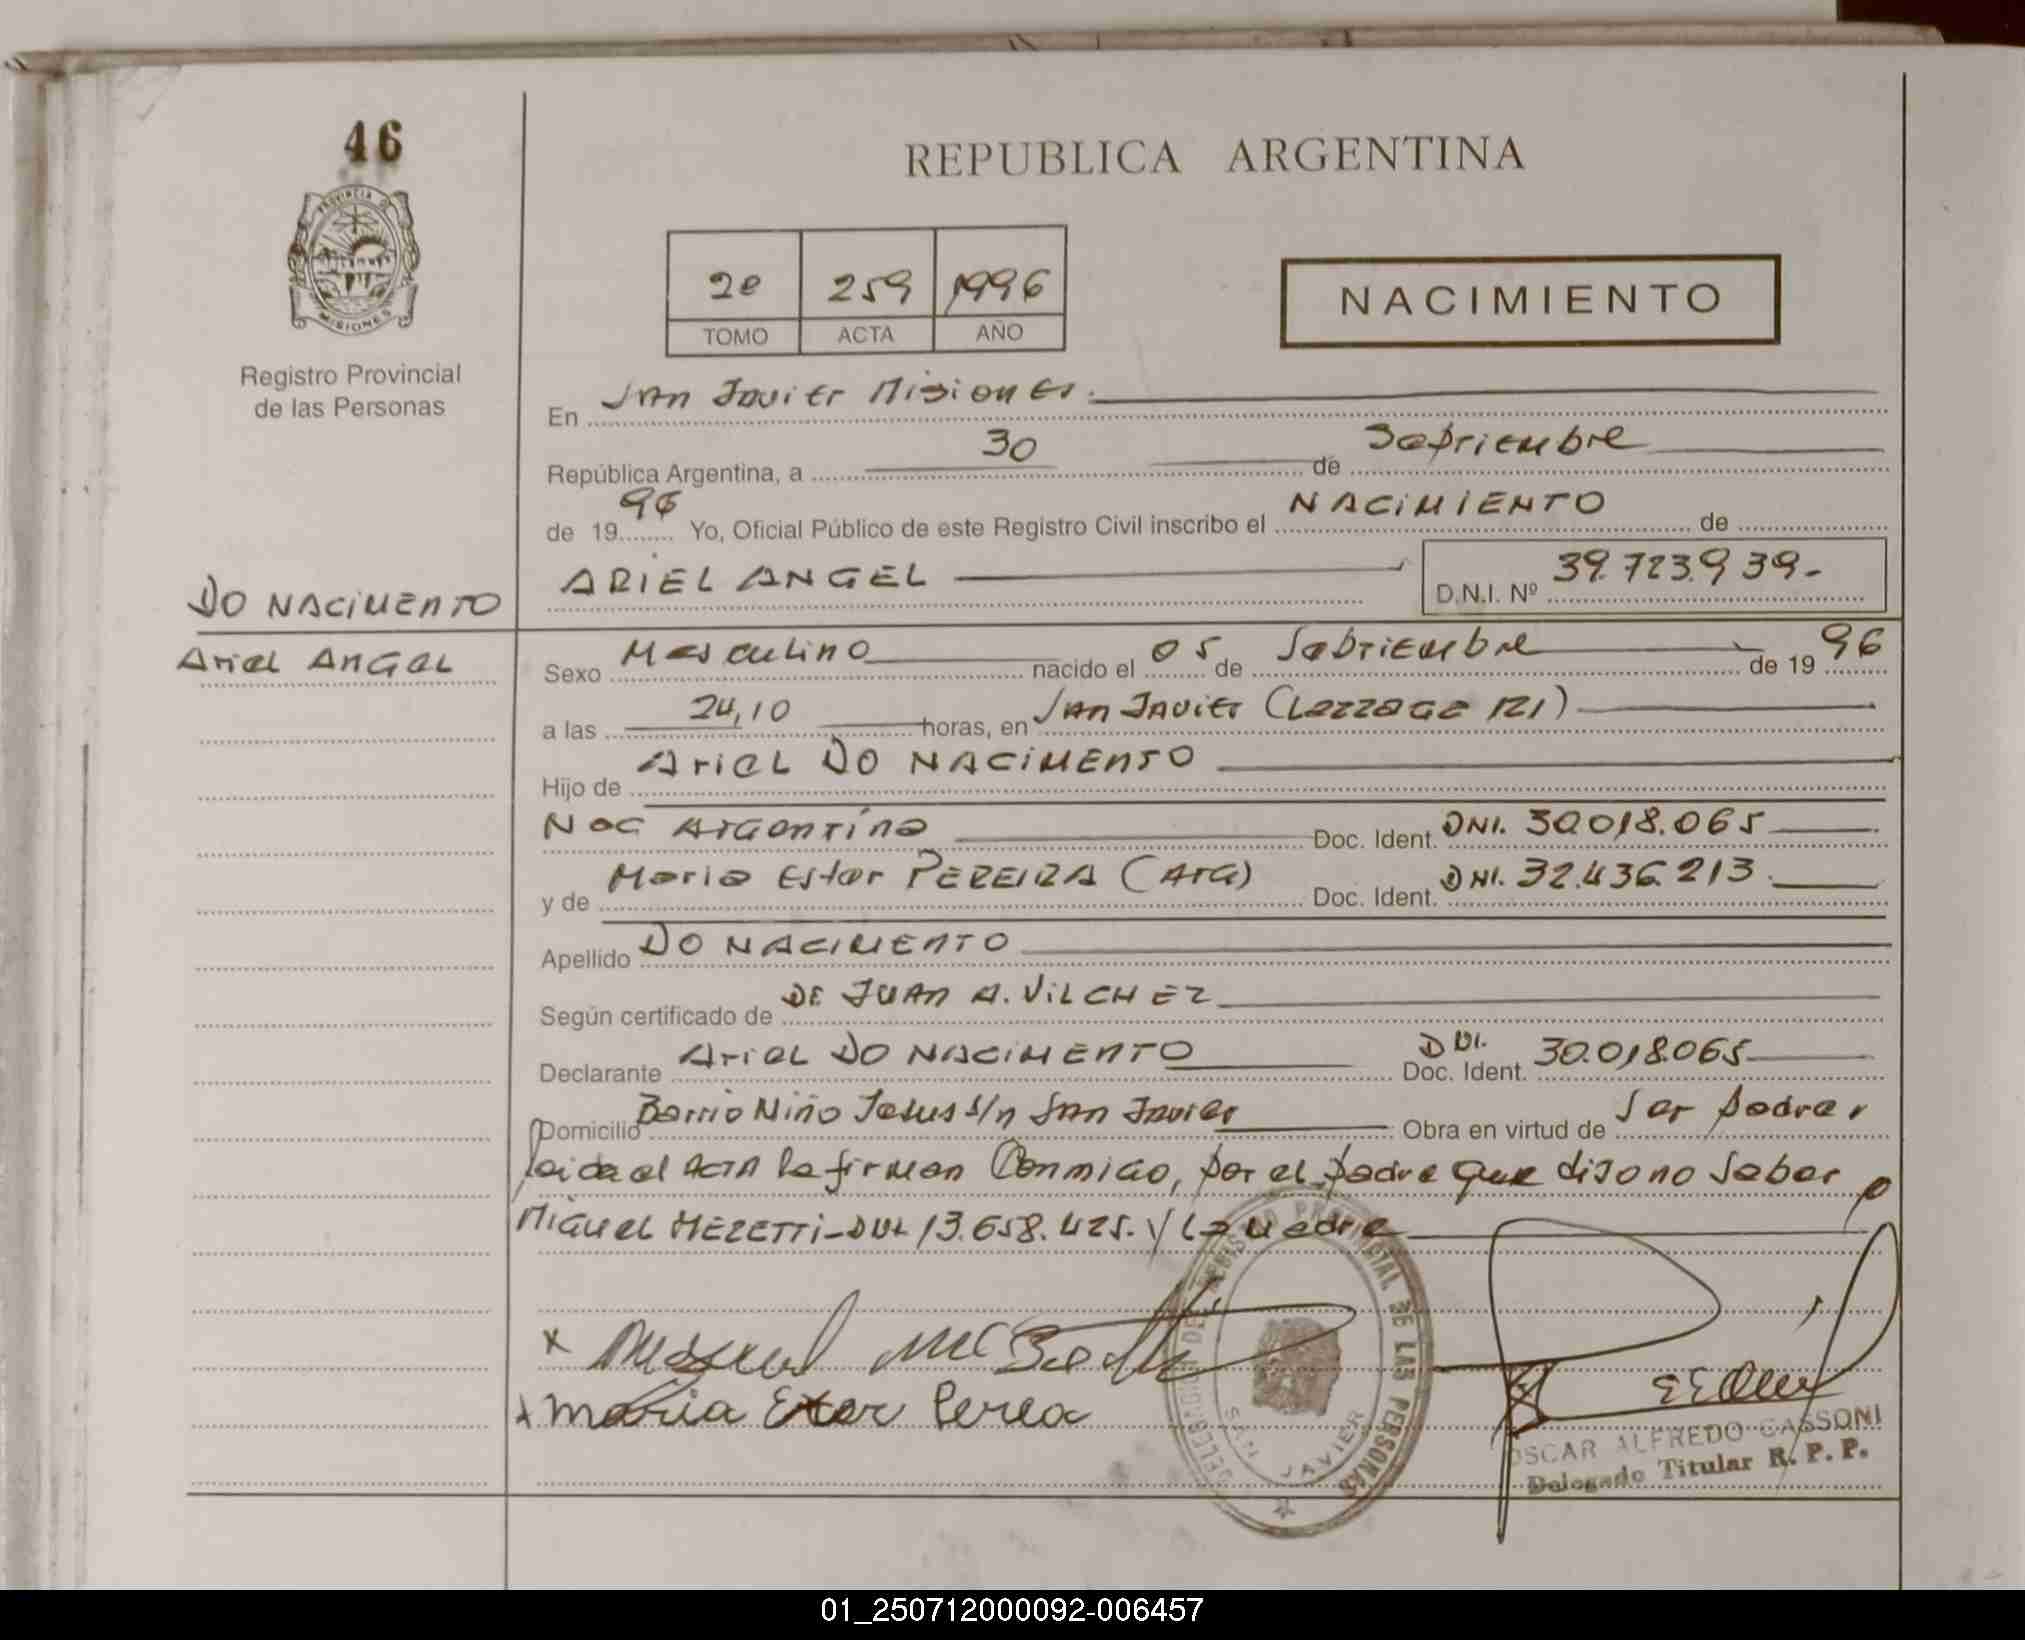 46
PROVINCIA DE
MISIONES
Registro Provincial
de las Personas
REPUBLICA ARGENTINA
2º 259 1996
TOMO ACTA AÑO
NACIMIENTO
En San Javier Misiones.
República Argentina, a 30 de Septiembre
de 1996 Yo, Oficial Público de este Registro Civil inscribo el NACIMIENTO de
ARIEL ANGEL D.N.I. Nº 39.723.939.-
DO NACIMENTO
Ariel ANGEL
Sexo Masculino nacido el 05 de Septiembre de 1996
a las 24,10 horas, en San Javier (Lezzage 121)
Hijo de Ariel DO NACIMENTO
Nac Argentina Doc. Ident. DNI. 30.018.065
y de Maria Ester PEREIRA (Arg) Doc. Ident. DNI. 32.436.213.
Apellido DO NACIMENTO
Según certificado de DE JUAN A. VILCHEZ
Declarante Ariel DO NACIMENTO Doc. Ident. DNI. 30.018.065
Domicilio Barrio Niño Jesus s/n San Javier Obra en virtud de Ser padre,
leida el ACTA la firman Conmigo, por el padre que dijo no saber
Miguel MEZETTI-DNI. 13.658.425. y la madre
x Miguel
x Maria Ester Perea
DELEGACION DEL REGISTRO PROVINCIAL DE LAS PERSONAS
SAN JAVIER
OSCAR ALFREDO CASSONI
Delegado Titular R. P. P.
01_250712000092-006457